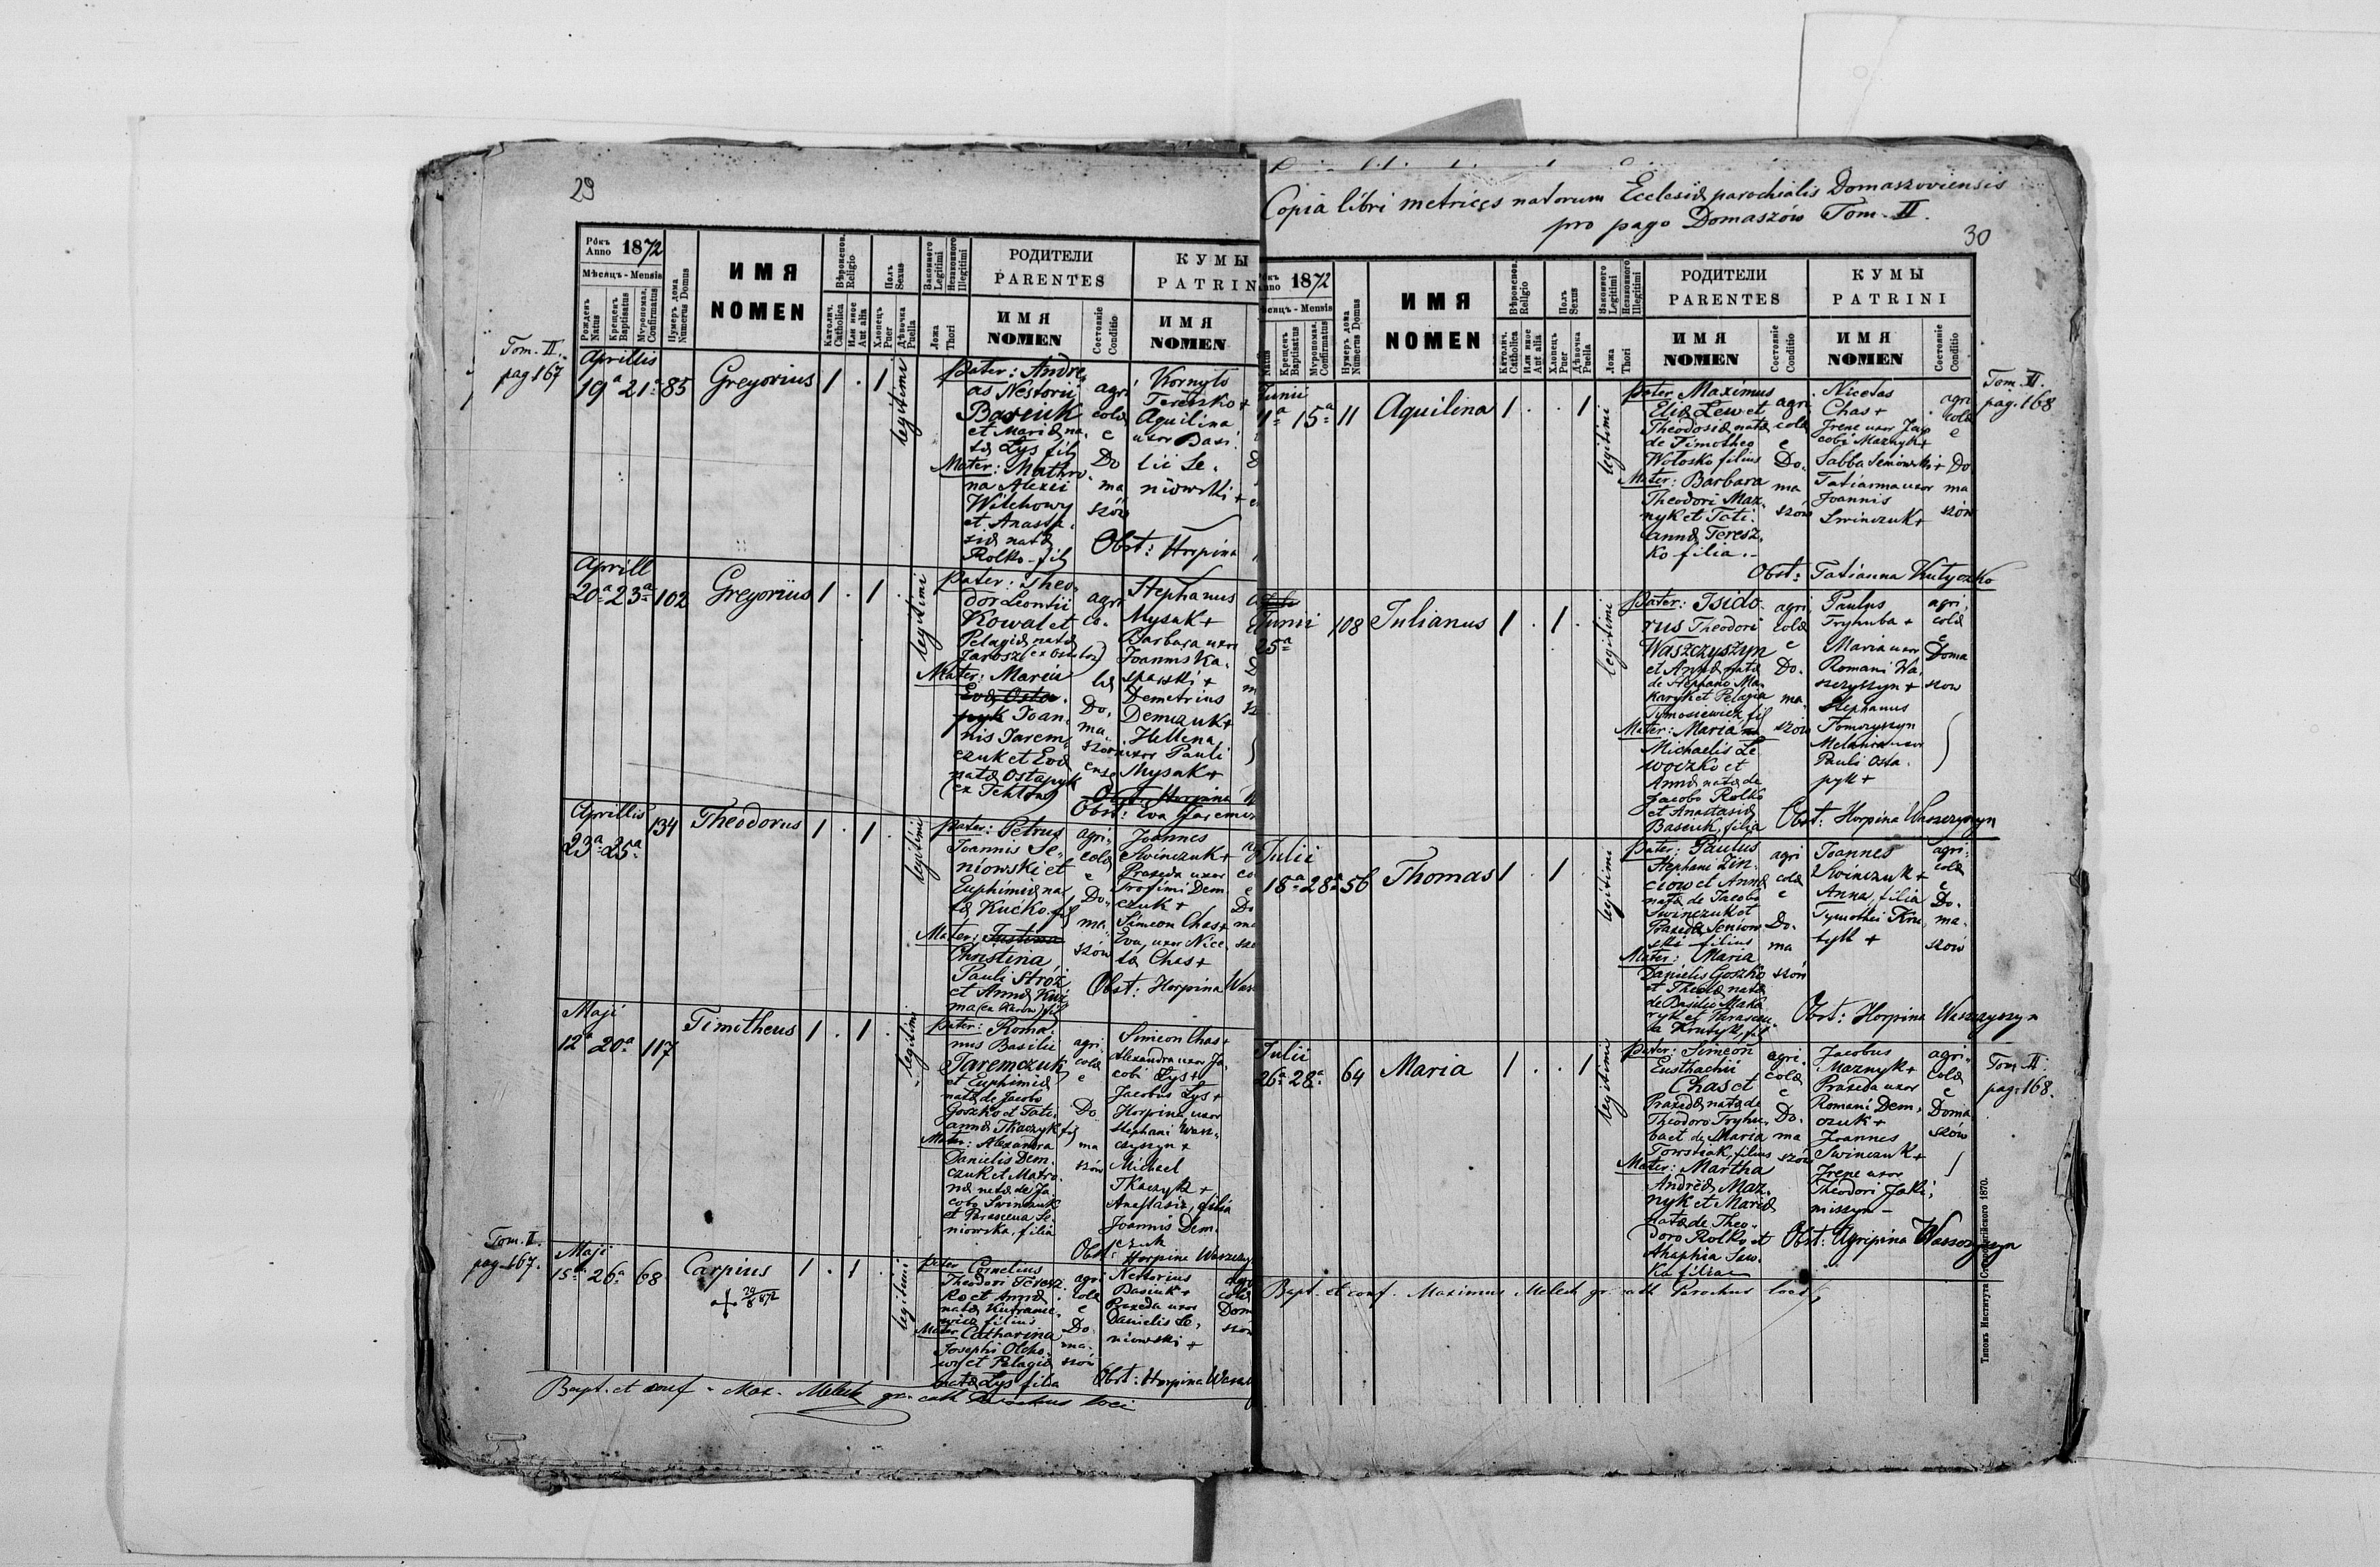 29
Рôкъ Anno 1872
Мѣсяцъ - Mensis
Рожденъ Natus
Крещенъ Baptisatus
Мνропомаз. Confirmatus
Нумеръ дома Numerus Domus
ИМЯ
NOMEN
Вѣроиспов. Religio
Католич. Catholica
Или иное Aut alia
Полъ Sexus
Хлопецъ Puer
Дѣвочка Puella
Законного Legitimi
Незаконного Illegitimi
Ложа Thori
РОДИТЕЛИ
PARENTES
ИМЯ
NOMEN
Состояніе Conditio
КУМЫ
PATRIN
ИМЯ
NOMEN
Tom. II.
pag 167
Aprillis
19ª 21ª 85 Gregorius 1 . 1 legitimi
Pater: Andre
as Nestorii
Basiuk
et Mariæ na
tæ Lys fil
Mater: Mathro
na Alexii
Wilchowy
et Anasta
siæ natæ
Rolko fil
agri
colæ
e
Do
ma
szów
Kornylo
Tereszko +
Aquilina
uxor Basi
lii Se
niowski +
Obst: Horpina
Aprill
20ª 23ª 102 Gregorius 1 . 1 legitimi
Pater: Theo
dor Leontii
Kowal et
Pelagiæ natæ
Jarosz
Mater: Maria
Joan
nis Jarem
czuk et Evæ
natæ Ostapyk
agri
co
læ
Do
ma
Stephanus
Mysak +
Barbara uxor
Joannis Ka
sparski +
Demetrius
Demczuk +
Hellena
uxor Pauli
Mysak +
Obst: Horpina
Obst: Eva Jaremcz
Aprillis
23ª 25ª 134 Theodorus 1 . 1 legitimi
Pater: Petrus
Joannis Se
niowski et
Euphimiæ na
tæ Kućko fil
Mater: Justina
Christina
Pauli Stróż
et Annæ Kuź
ma
agri
colæ
e
Do
ma
szów
Joannes
Swinczuk +
Praxeda uxor
Trofimi Dem
czuk +
Simeon Chas +
Eva, uxor Nice
tæ Chas +
Obst: Horpina Was
Maji
12ª 20ª 117 Timotheus 1 . 1 legitimi
Pater: Roma
nus Basilii
Jaremczuk
et Euphimiæ
natæ de Jacobo
Goszko et Tati
annæ Tkaczyk fil
Mater: Alexandra
Danielis Dem
czuk et Matro
næ natæ de Ja
cobo Swinczuk
et Parascena Se
niowska, filia
agri
colæ
e
Do
ma
szów
Simeon Chas +
Alexandra uxor Ja
cobi Lys +
Jacobus Lys +
Horpina uxor
Stephani Wasz
czyszyn +
Michael
Tkaczyk +
Anastasia, filia
Joannis Dem
czuk
Obst: Horpina Waszczy
Tom. II.
pag. 167.
Maji
15ª 26ª 68 Carpius 1 . 1 legitimi
+ 29/8 872
Pater Cornelius
Theodori Teresz
ko et Annæ
natæ
filius
Mater Catharina
Josephi Olcho
wy et Pelagiæ
natæ Lys filia
agri
colæ
e
Do
ma
szów
Nestorius
Basiuk +
Praxeda uxor
Danielis Se
niowski +
Obst: Horpina Wasz
Bapt. et conf. Max. Melech gr. cath Parochus loci
Copia libri metrices natorum Ecclesiæ parochialis Domaszoviensis
pro pago Domaszów Tom. II.
30
Anno 1872
Мѣсяцъ - Mensis
Natus
Крещенъ Baptisatus
Мνропомаз. Confirmatus
Нумеръ дома Numerus Domus
ИМЯ
NOMEN
Вѣроиспов. Religio
Католич. Catholica
Или иное Aut alia
Полъ Sexus
Хлопецъ Puer
Дѣвочка Puella
Законного Legitimi
Незаконного Illegitimi
Ложа Thori
РОДИТЕЛИ
PARENTES
ИМЯ
NOMEN
Состояніе Conditio
КУМЫ
PATRINI
ИМЯ
NOMEN
Состояніе Conditio
Tom. II.
pag. 168
Junii
15ª 11 Aquilina 1 . . 1 legitimi
Pater Maximus
Eliæ Lew et
Theodosiæ natæ
de Timotheo
Wołosko filius
Mater: Barbara
Theodori Maz
nyk et Tati
annæ Teresz
ko filia
agri
colæ
e
Do
ma
szów
Nicetas
Chas +
Irene uxor Ja
cobi Maznyk +
Sabba Seniowski +
Tatianna uxor
Joannis
Swinczuk +
agri
colæ
e
Do
ma
szów
Obst: Tatianna Kutyczko
Junii
25ª 108 Julianus 1 . 1 . legitimi
Pater: Isido
rus Theodori
Waszczyszyn
et Annæ natæ
de Stephano Ma
karyk et Pelagia
Tymosiewicz fil
Mater: Maria
Michaelis Le
woczko et
Annæ natæ de
Jacobo Rolko
et Anastasiæ
Basiuk, filia
agri
colæ
e
Do
ma
szów
Paulus
Tryhuba +
Maria uxor
Romani Wa
szczyszyn +
Stephanus
Tomczyszyn
Melania uxor
Pauli Osta
pyk +
agri
colæ
e
Doma
szow
Obst: Horpina Waszczyszyn
Julii
18ª 28ª 56 Thomas 1 . 1 . legitimi
Pater: Paulus
Stephani Zin
ciow et Annæ
natæ de Jacobo
Swinczuk et
Praxedæ Seniow
ski filius
Mater: Maria
Danielis Goszko
et Theclæ natæ
de Basilio Maka
ryk et Parasceu
ia Krutyk, fil
agri
colæ
e
Do
ma
szów
Joannes
Swinczuk +
Anna, filia
Tymothei Kru
tyk +
agri
colæ
e
Do
ma
szów
Obst: Horpina Waszczyszyn
Julii
26ª 28ª 64 Maria 1 . . 1 legitimi
Pater: Simeon
Eusthachii
Chas et
Praxedæ natæ de
Theodoro Tryhu
ba et de Maria
Towstiak, filius
Mater: Martha
Andreæ Maz
nyk et Mariæ
natæ de Theo
doro Rolko et
Ahaphia Saw
ka filia
agri
colæ
e
Do
ma
szów
Jacobus
Maznyk +
Praxeda uxor
Romani Dem
czuk +
Joannes
Swinczuk +
Irene uxor
Theodori Jaki
miszyn
agri
colæ
e
Doma
szów
Obst: Agripina Waszczyszyn
Tom. II.
pag. 168.
Bapt. et conf. Maximus Melech gr. cath Parochus loci
Типомъ Института Ставропигійского 1870.